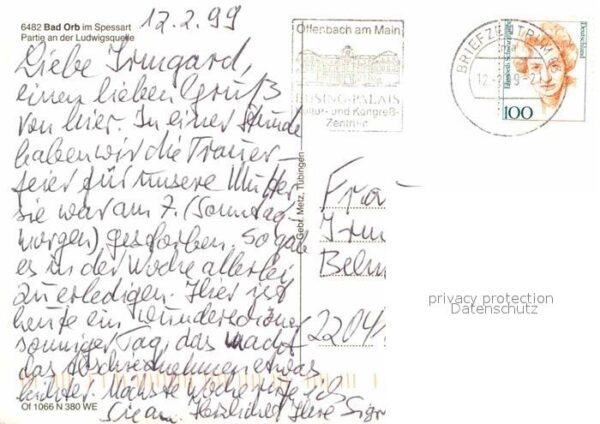 12.2.99
6482 Bad Orb im Spessart
Partie an der Ludwigsquelle
Liebe Irmgard,
einen lieben Gruß
von hier. In einer Stunde
haben wir die Trauer-
feier für unsere Mutter
sie war am 7. (Sonntag-
morgen) gestorben. So gab
es in der Woche allerlei
zu erledigen. Hier ist
heute ein wunderschöner
sonniger Tag, das macht
das Abschiednehmen etwas
leichter. Nächste Woche rufe ich
Sie an. Herzlichst Ihre
Of 1066 N 380 WE
Gebr. Metz, Tübingen
Offenbach am Main
BÜSING-PALAIS
Kultur- und Kongreß-
Zentrum
BRIEFZENTRUM
12.-2.99-21
Deutschland
100
Frau
Irm
Belm
2204
privacy protection
Datenschutz